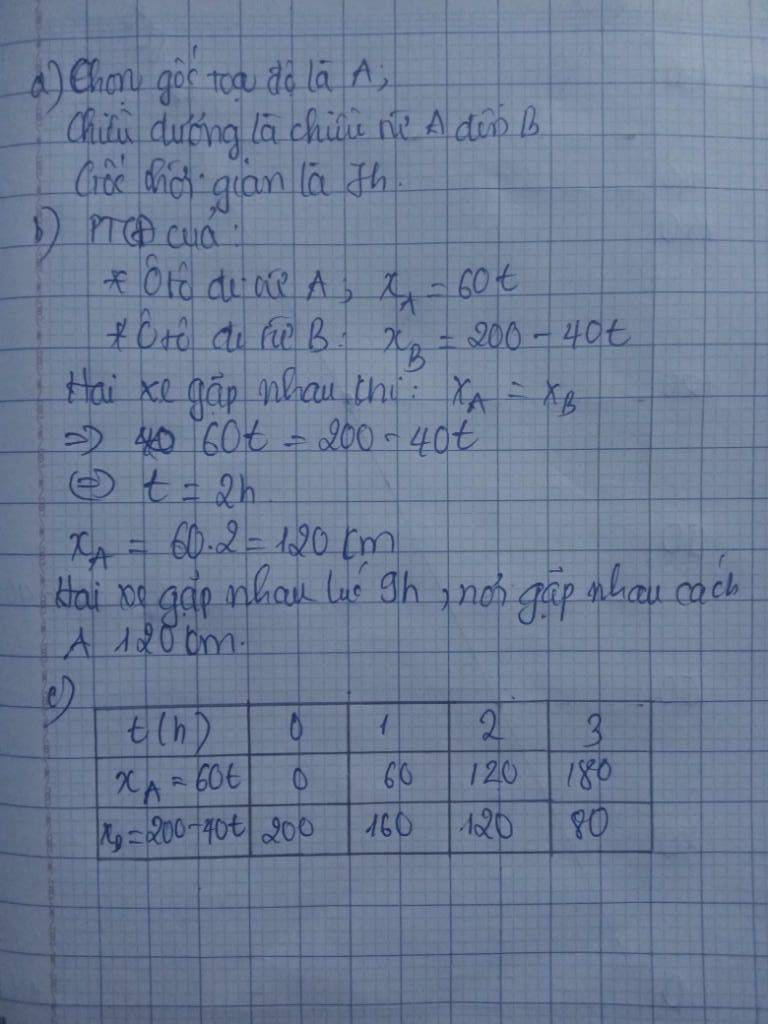 a) Chọn gốc toạ độ là A;
Chiều dương là chiều từ A đến B
Gốc thời gian là 7h.
b) PTCĐ của:
* Ô tô đi từ A; x_A = 60t
* Ô tô đi từ B: x_B = 200 - 40t
Hai xe gặp nhau thì: x_A = x_B
=> 60t = 200 - 40t
<=> t = 2h
x_A = 60.2 = 120 km
Hai xe gặp nhau lúc 9h, nơi gặp nhau cách
A 120 km.
c)
t(h) 0 1 2 3
x_A = 60t 0 60 120 180
x_B = 200 - 40t 200 160 120 80